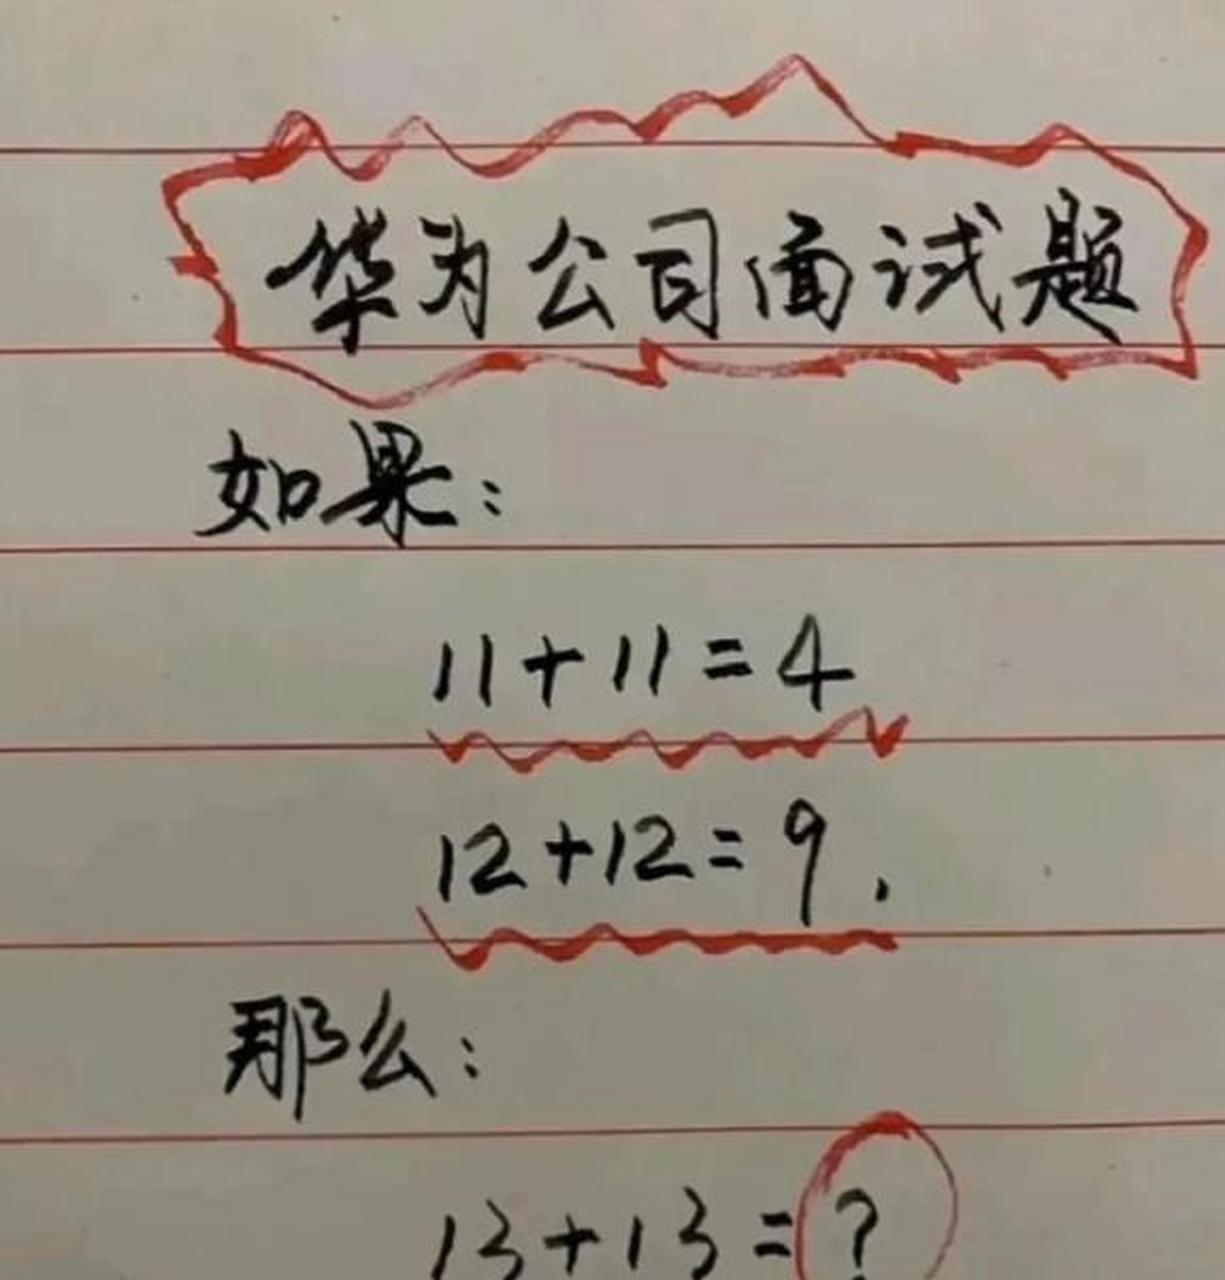 华为公司面试题
如果:
11+11=4
12+12=9.
那么:
13+13=?